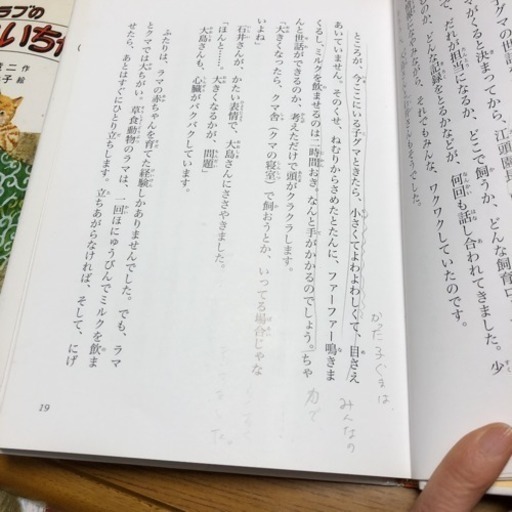 グマの世
マがくると決まってから、江頭園長
で、だれが担当になるか、どこで飼うか、どんな飼育ロ
か、どんな記録をとるかなどが、何回も話し合われてきました。少
ながら、それでもみんな、ワクワクしていたのです。
さんもそうでした。
ところが、今ここにいる子グマときたら、小さくてよわよわしくて、目さえ
あいていません。そのくせ、ねむりからさめたとたんに、ファーファー鳴きま
くるし、ミルクを飲ませるのは二時間おき。なんと手がかかるのでしょう。ちゃ
んと世話ができるのか、考えただけで頭がクラクラします。
「大きくなったら、クマ舎(クマの寝室)で飼おうとか、いってる場合じゃな
いよね」
石井さんが、かたい表情で、大島さんにささやきました。
「ほんと……。大きくなるかが、問題」
大島さんも、心臓がバクバクしています。
ふたりは、ラマの赤ちゃんを育てた経験しかありませんでした。でも、ラマ
とクマでは大ちがい。草食動物のラマは、一回ほにゅうびんでミルクを飲ま
せたら、あとはすぐにひとり立ちします。立ちあがらなければ、そして、にげ
19
かった子ぐまは、
みんなの
力で
ラブの
いちた
二 作
子 絵